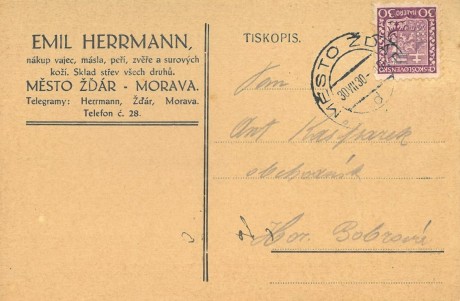 EMIL HERRMANN,
nákup vajec, másla, peří, zvěře a surových
koží. Sklad střev všech druhů.
MĚSTO ŽĎÁR - MORAVA.
Telegramy: Herrmann, Žďár, Morava.
Telefon č. 28.
TISKOPIS.
MĚSTO ŽĎÁR
30 VII 30
30 HALÉŘŮ 30
ČESKOSLOVENSKO
Pan
Ant Kašparek
obchodník
Hor. Bobrová